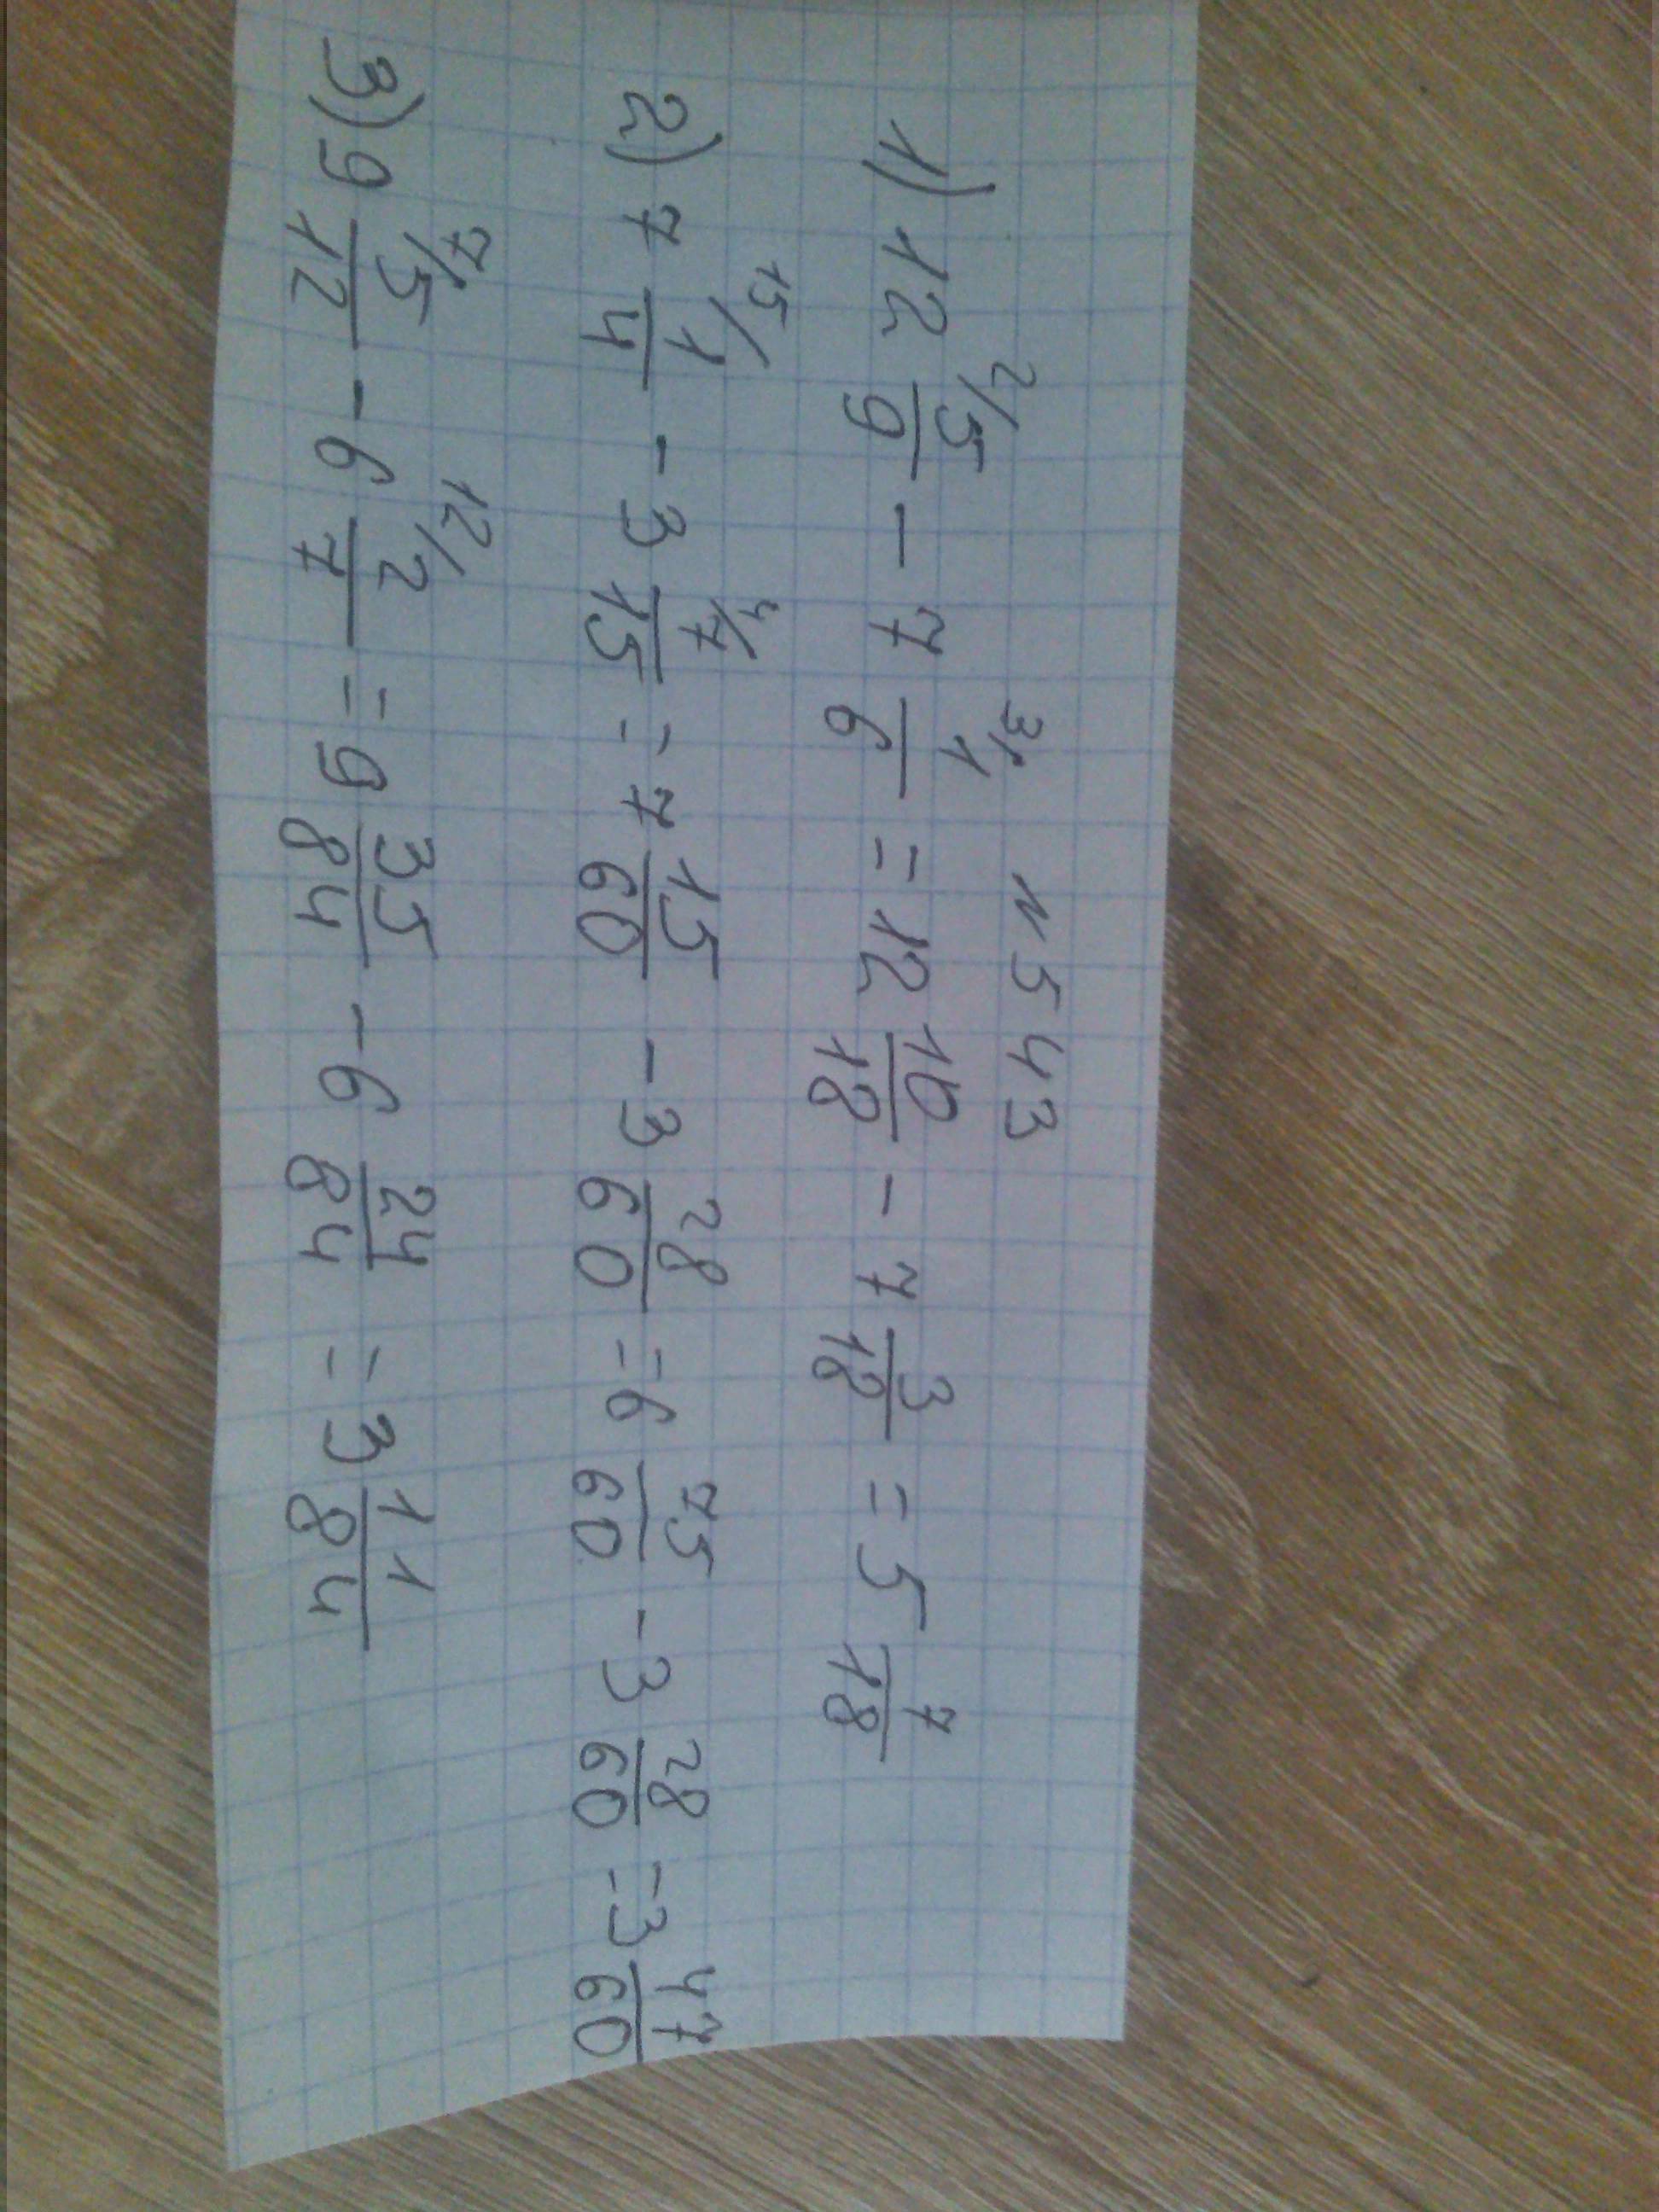 н 543
1) 12 2/5/9 - 7 3/1/6 = 12 10/18 - 7 3/18 = 5 7/18
2) 7 15/1/4 - 3 4/7/15 = 7 15/60 - 3 28/60 = 6 75/60 - 3 28/60 = 3 47/60
3) 9 7/5/12 - 6 12/2/7 = 9 35/84 - 6 24/84 = 3 11/84